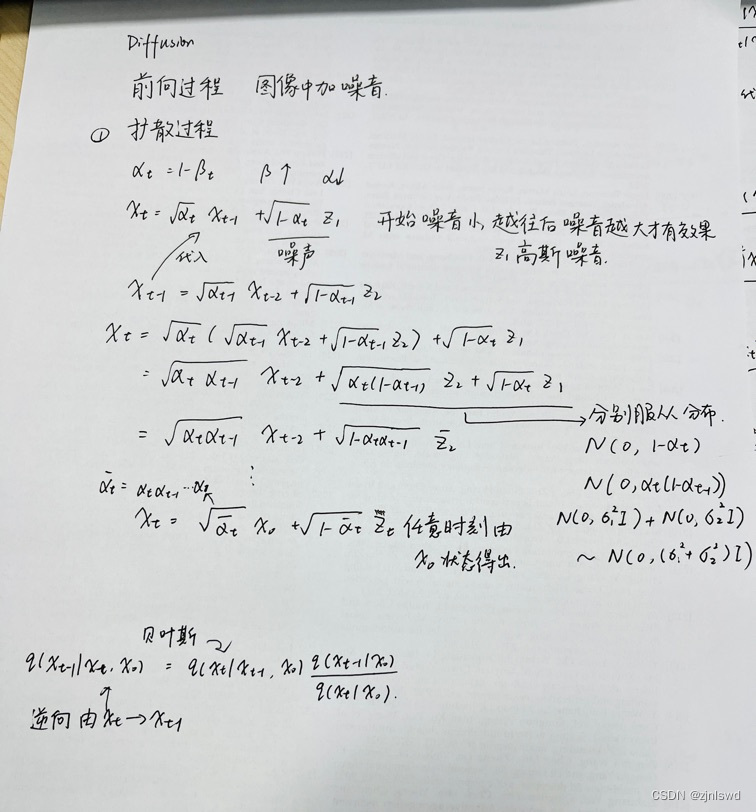 Diffusion
前向过程 图像中加噪音.
① 扩散过程
αt = 1-βt β↑ α↓
xt = √αt xt-1 + √1-αt z1 开始噪音小,越往后噪音越大才有效果
代入 噪声 z1 高斯噪音.
xt-1 = √αt-1 xt-2 + √1-αt-1 z2
xt = √αt (√αt-1 xt-2 + √1-αt-1 z2) + √1-αt z1
= √αt αt-1 xt-2 + √αt(1-αt-1) z2 + √1-αt z1
→分别服从分布.
= √αtαt-1 xt-2 + √1-αtαt-1 z̄2 N(0, 1-αt)
ᾱt = αtαt-1 ⋯ ⋮ N(0, αt(1-αt-1))
xt = √ᾱt x0 + √1-ᾱt z̄t 任意时刻由 N(0, σ1²I) + N(0, σ2²I)
x0 状态得出. ~ N(0, (σ1²+σ2²)I)
贝叶斯
q(xt-1|xt, x0) = q(xt|xt-1, x0) q(xt-1|x0)
q(xt|x0).
逆向 由 xt → xt-1
CSDN @zjnlswd